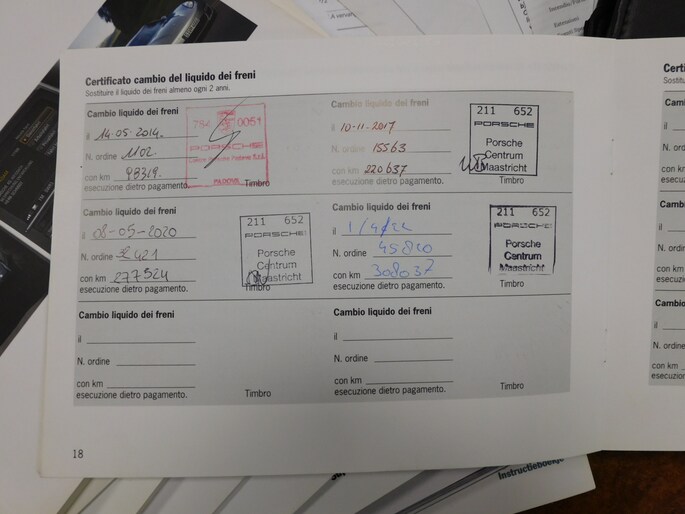 Certificato cambio del liquido dei freni
Sostituire il liquido dei freni almeno ogni 2 anni.
Cambio liquido dei freni
il 14.05.2014.
N. ordine 1102
con km 93319.
esecuzione dietro pagamento.
Timbro
0051
PORSCHE
PADOVA
Cambio liquido dei freni
il 10-11-2017
N. ordine 15563
con km 220637
esecuzione dietro pagamento.
Timbro
211 652
PORSCHE
Porsche
Centrum
Maastricht
Cambio liquido dei freni
il 08-05-2020
N. ordine
con km 277524
esecuzione dietro pagamento.
Timbro
211 652
PORSCHE
Porsche
Centrum
Maastricht
Cambio liquido dei freni
il 1/4/22
N. ordine 45820
con km 308037
esecuzione dietro pagamento.
Timbro
211 652
PORSCHE
Porsche
Centrum
Maastricht
Cambio liquido dei freni
il
N. ordine
con km
esecuzione dietro pagamento.
Timbro
Cambio liquido dei freni
il
N. ordine
con km
esecuzione dietro pagamento.
Timbro
18
Instructieboekje